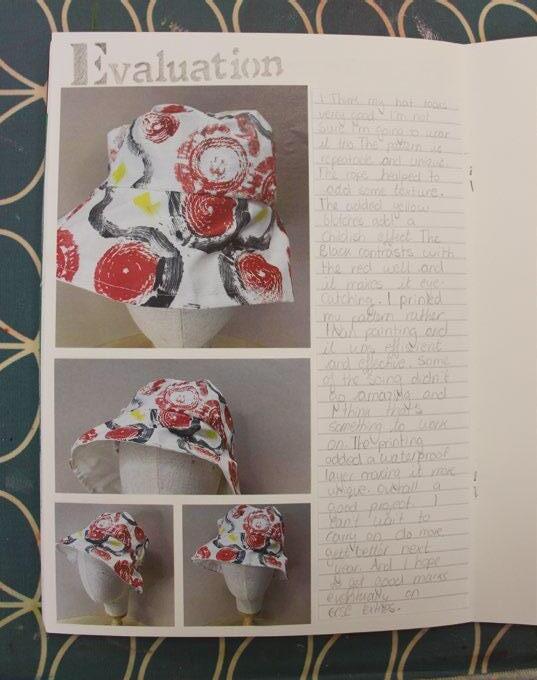 Evaluation
I Think my hat looks
very good I'm not
sure I'm going to wear
it tho The pattern is
repeatable and unique.
The rope helped to
add some texture.
The added yellow
blotches add a
Childish effect The
Black contrasts with
the red well and
it makes it eye-
catching. I printed
my pattern rather
than painting and
it was efficient
and effective. Some
of the soing didn't
go amazing and
I think that's
something to work
on. The printing
added a waterproof
layer making it more
unique. Overall a
good project. I
can't wait to
carry on do more
get better next
year. And I hope
to get good marks
eventually on